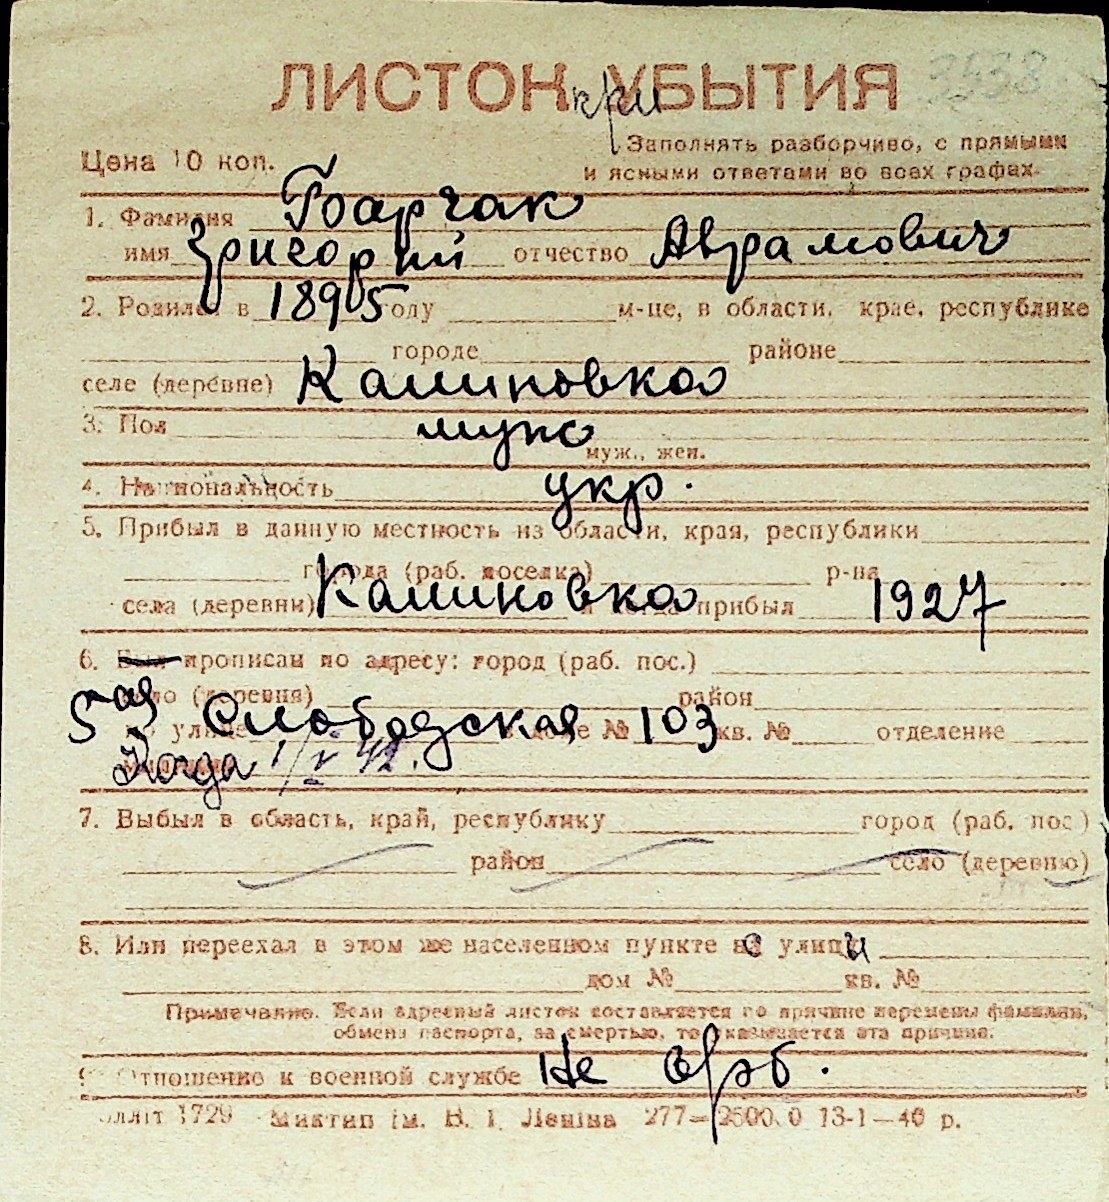 3538
ЛИСТОК УБЫТИЯ
при
Цена 10 коп.
Заполнять разборчиво, с прямыми
и ясными ответами во всех графах.
1. Фамилия Барчак
имя Григорий отчество Аврамович
2. Родился в 1895 году м-це, в области, крае, республике
городе районе
селе (деревне) Калиновка
3. Пол муж
муж., жен.
4. Национальность укр.
5. Прибыл в данную местность из области, края, республики
города (раб. поселка) р-на
села (деревни) Калиновка и когда прибыл 1927
6. Был прописан по адресу: город (раб. пос.)
село (деревня) район
5ая Слободская
по улице доме № 103 кв. № отделение
милиции Когда 1/V 42.
7. Выбыл в область, край, республику город (раб. пос.)
район село (деревню)
8. Или переехал в этом же населенном пункте с улицы
дом № кв. №
Примечание. Если адресный листок составляется по причине перемены фамилии,
обмена паспорта, за смертью, то указывается эта причина.
9. Отношение к военной службе Не
1729 Миктип ім. В. І. Леніна 277—2500.0 13-1—40 р.